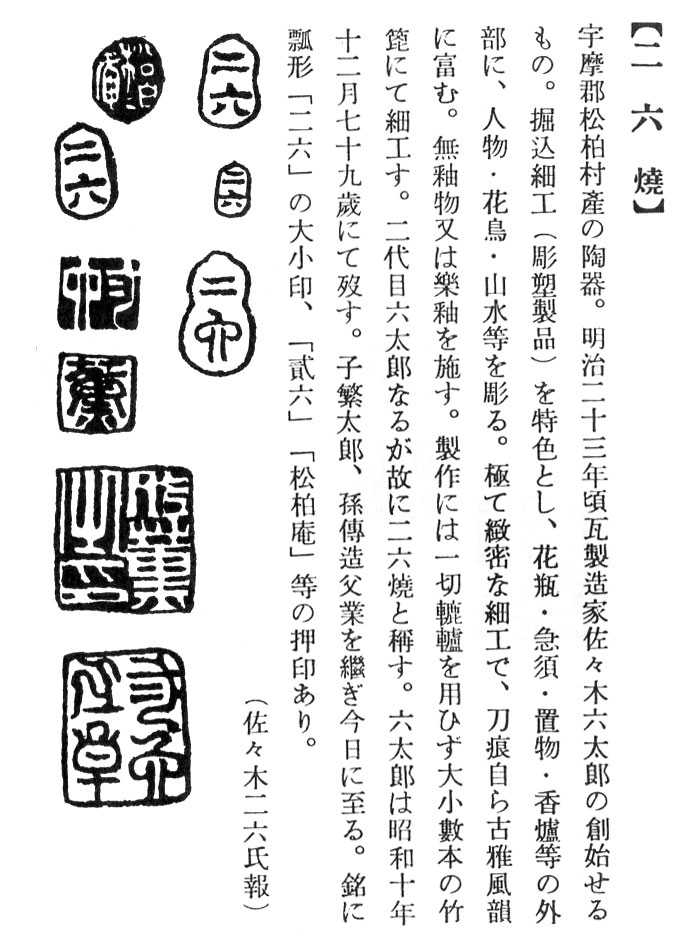 【二六燒】
宇摩郡松柏村產の陶器。明治二十三年頃瓦製造家佐々木六太郎の創始せる
もの。掘込細工(彫塑製品)を特色とし、花瓶・急須・置物・香爐等の外
部に、人物・花鳥・山水等を彫る。極て緻密な細工で、刀痕自ら古雅風韻
に富む。無釉物又は樂釉を施す。製作には一切轆轤を用ひず大小數本の竹
箆にて細工す。二代目六太郎なるが故に二六燒と稱す。六太郎は昭和十年
十二月七十九歲にて歿す。子繁太郎、孫傳造父業を繼ぎ今日に至る。銘に
瓢形「二六」の大小印、「貳六」「松柏庵」等の押印あり。
(佐々木二六氏報)
二六
二六
二六
二六